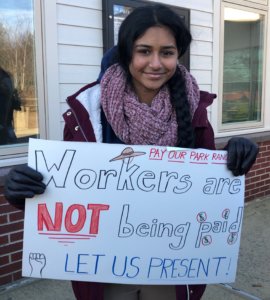 PAY OUR PARK RANGERS
Workers are
NOT being paid
LET US PRESENT!